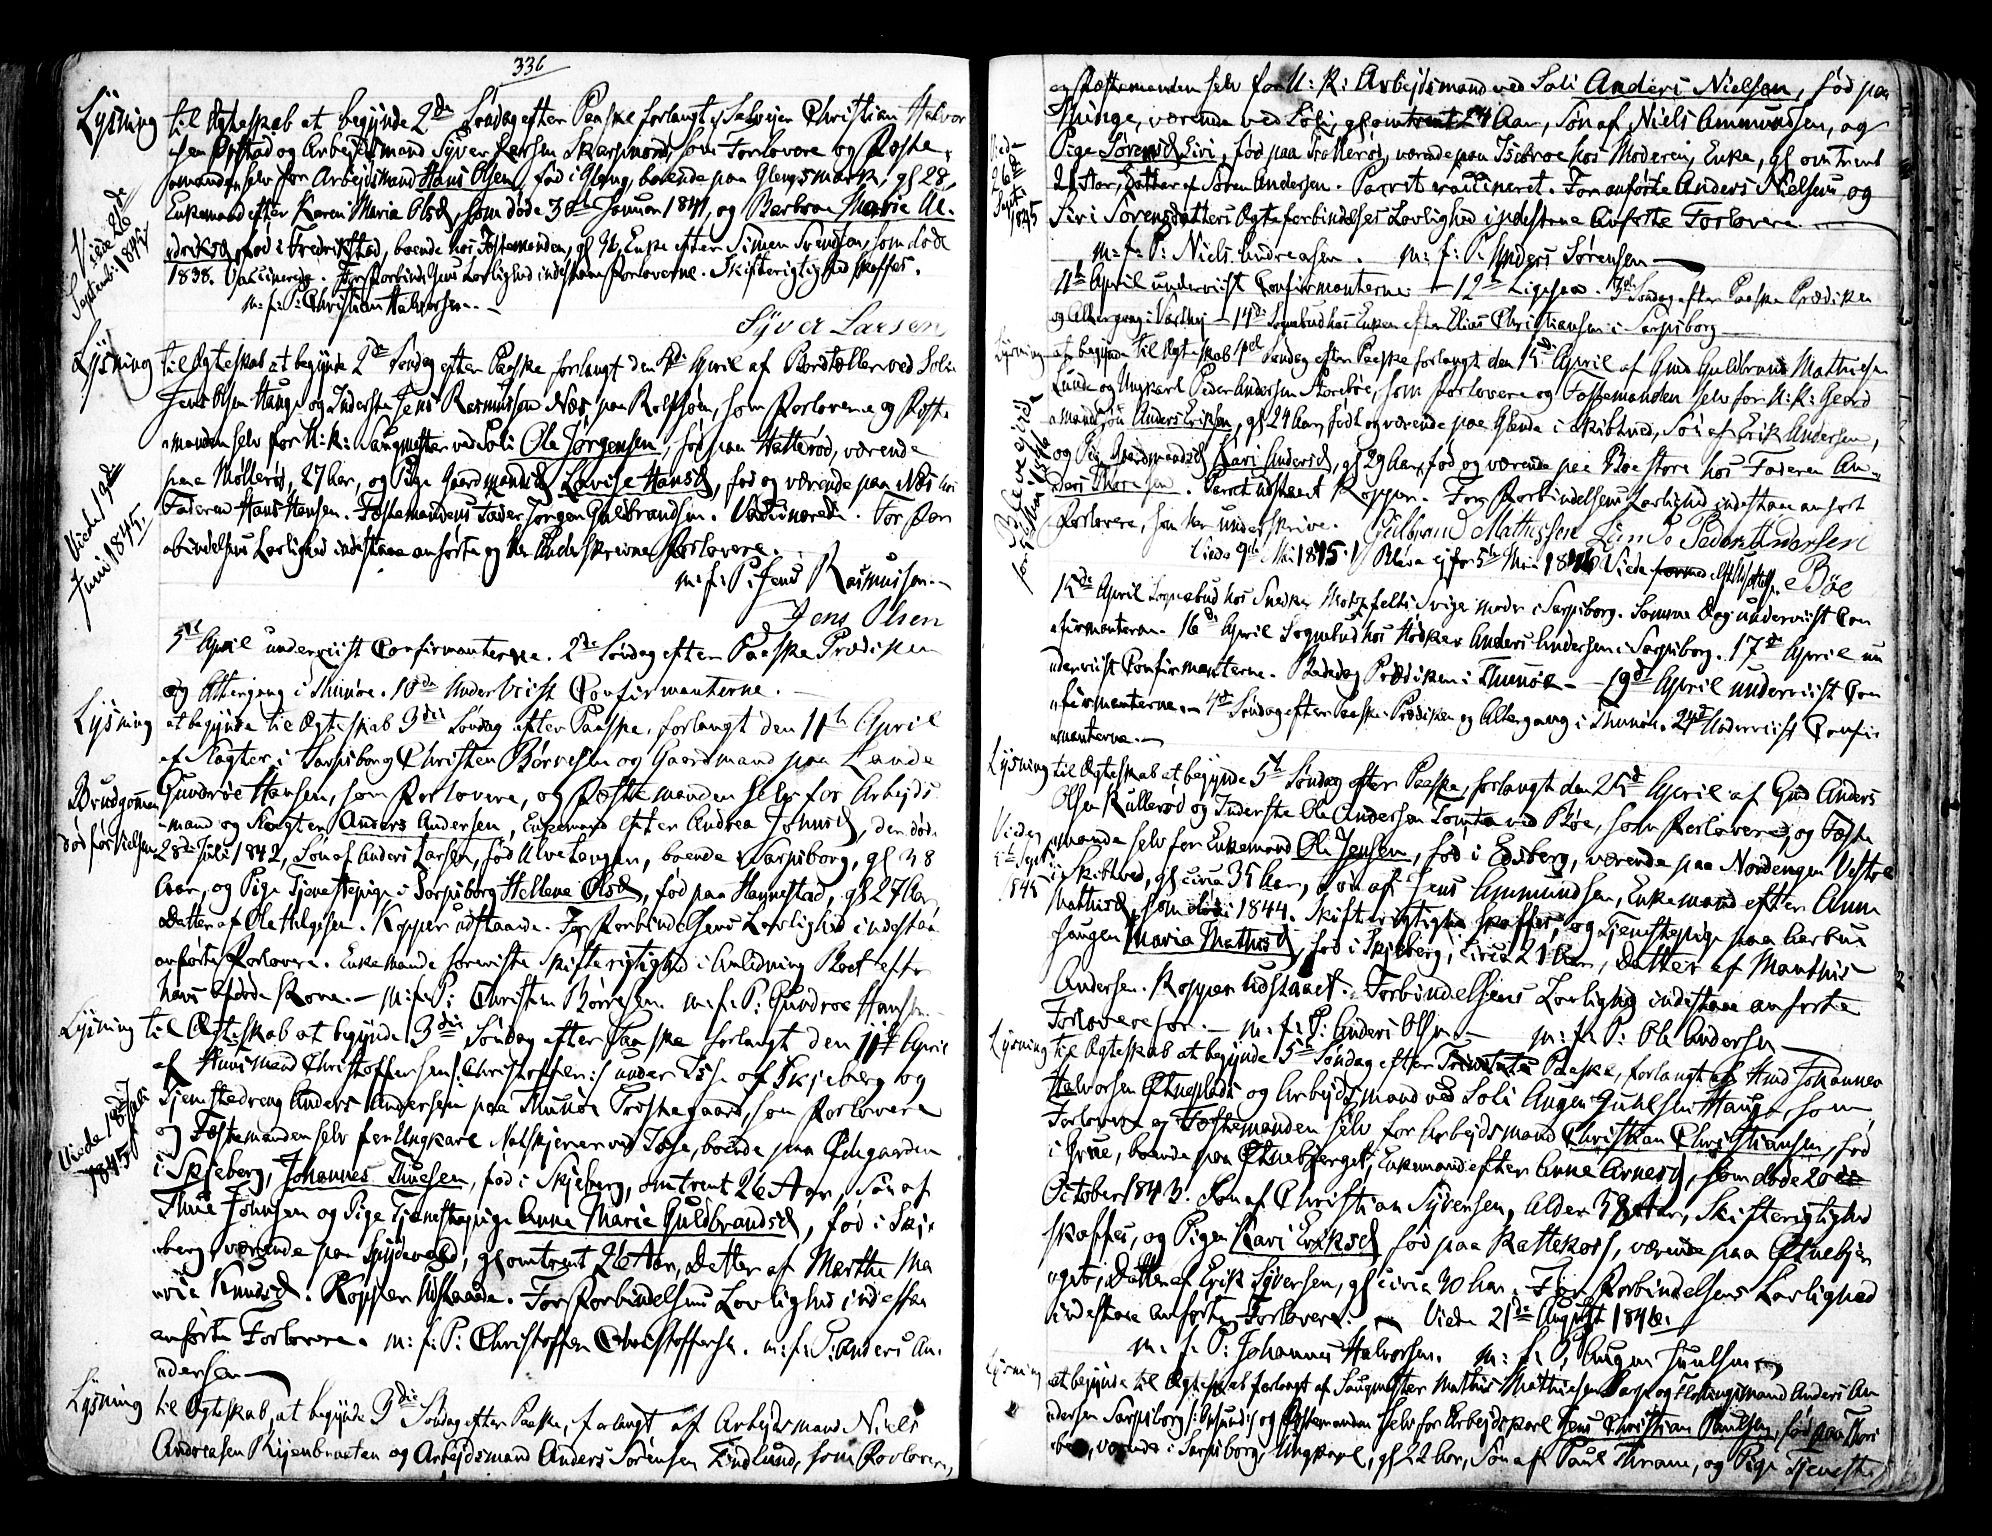 336
Lysning til Ægteskab at begynde 2den Søndag efter Paaske forlangt af Christian Halvor
og Arbejdsmand Syver Larsen Skarpnord, som Forlovere og Fæste
manden selv for Arbejdsmand Hans Olsen, fød i Gleng, boende paa Glengsmark, gl 28,
Enkemand efter Karen Maria Olsd, som døde 30te Januar 1841, og Barbra Marie
fød i Fredrikstad, boende hos Fæstemanden, gl Enke efter Simen Svendsen, som døde
1838. Vaccinerede. For Forbindelsens Lovlighed indestaae Forloverne. Skifterigtighed skaffes.
m: f: P: Christian Halvorsen.
Syver Larsen
Viede
Septembr 1845
Lysning til Ægteskab at begynde 2den Søndag efter Paaske forlangt den April af Bordtæller ved Soli
Jens Olsen Hauge og Inderste Jens Rasmussen Næs paa Rolfsøen, som Forlovere og Fæste
manden selv for U: K: Saugmester ved Soli Ole Jørgensen, fød paa Hatterød, værende
paa Møllerød, 27 Aar, og Pige Gaardmandsd Lovise Hansd, fød og værende paa Næs hos
Faderen Hans Hansen. Fæstemandens Fader Jørgen Guldbrandsen. Vaccinerede. For For
bindelsens Lovlighed indestaae anførte og her Underskrevne Forlovere.
m: f: P: Jens Rasmussen
Jens Olsen
Viede 19de
Juni 1845.
5te April underviist Confirmanterne. 2den Søndag efter Paaske Prædiken
og Altergang i Thunøe. 10de Underviist Confirmanterne.
Lysning at begynde til Ægteskab 3die Søndag efter Paaske, forlangt den 11te April
af Slagter i Sarpsborg Christen Børresen og Gaardmand paa Lande
Gundroe Hansen, som Forlovere, og Fæstemanden selv for Arbejds
mand og Slagter Anders Andersen, Enkemand efter Andrea Johnsd, den død
28de Juli 1842, Søn af Anders Larsen, fød Alvelængen, boende i Sarpsborg, gl 38
Aar, og Pige Tjenestepige i Sarpsborg Hellene Olsd, fød paa Hannestad, gl 27 Aar,
Datter af Ole Helgesen. Kopper udstaaede. For Forbindelsens Lovlighed indestaa
anførte Forlovere. Enkemanden foreviste Skifterigtighed i Anledning Boet efter
hans afdøde Kone. m: f: P: Christen Børresen m: f: P: Gundroe Hansen
Brudgommen
død før Vielsen
Lysning til Ægteskab at begynde 3die Søndag efter Paaske forlangt den 11te April
af Huusmand Christoffersen /: Christoffer :/ under Ise af Skjeberg og
Tjenestedreng Anders Andersen paa Thunøe Præstegaard, som Forlovere
og Fæstemanden selv for Ungkarl boende paa Ødegaarden
i Skjeberg, Johannes Thuesen, fød i Skjeberg, omtrent 26 Aar, Søn af
Thue Johnsen og Pige Tjenestepige Anne Marie Guldbrandsd, fød i Skje
berg, værende paa gl omtrent 26 Aar, Datter af Marthe Ma
rie Knudsd. Kopper Udstaaede. For Forbindelsens Lovlighed indestaa
anførte Forlovere. m: f: P: Christoffer Christoffersen. m: f: P: Anders An
dersen
Viede 18de Juli
1845
Lysning til Ægteskab, at begynde 3die Søndag efter Paaske, forlangt af Arbejdsmand Niels
Andreasen Kijenbraaten og Arbejdsmand Anders Sørensen Lindlund, som Forlovere,
og Fæstemanden selv for U: K: Arbejdsmand ved Soli Anders Nielsen, fød paa
værende ved Soli, gl omtrent 24 Aar, Søn af Niels Ammundsen, og
Pige Sørensd Siri, fød paa værende paa Isebroe hos Moderen, Enke, gl omtrent
21 Aar, Datter af Søren Andersen. Parret vaccineret. For anførte Anders Nielsens og
Siri Sørensdatters Ægteforbindelses Lovlighed indestaae anførte Forlovere.
m: f: P: Niels Andreasen. m: f: P: Anders Sørensen
Viede
26de
Septr
1845
11te April underviist Confirmanterne. 12te Ligesaa. 3die Søndag efter Paaske Prædiken
og Altergang i Varteig 14de Sognebud hos Enken efter Elias Christiansen i Sarpsborg
Lysning at begynde til Ægteskab 4de Søndag efter Paaske forlangt den 15de April af Gmd Guldbrand Mathisen
Lunde og Ungkarl Peder Andersen Storebøe, som Forlovere og Fæstemanden selv for U: K: Gaard
mandssøn Anders Eriksen, gl 24 Aar, født og værende paa Glende i Skibtved, Søn af Erik Andersen,
og Pige Gaardmandsd Kari Andersd, gl 29 Aar, fød og værende paa Bøe store hos Faderen An
ders Thoresen. Parret udstaaet Kopper. For Forbindelsens Lovlighed indestaae anført
Forlovere, som her underskrive. Gulbrand Mathissen Lunde Peder Andersen
Bøe
15de April Sognebud hos Snedker Motzfelts Svigermoder i Sarpsborg. Samme Dag underviist Con
firmanterne. 16de April Sognebud hos Høker Anders Andersen i Sarpsborg. 17de April un
derviist Confirmanterne. Bededag Prædiken i Thunøe. 19de April underviist Con
firmanterne. 4de Søndag efter Paaske Prædiken og Altergang i Thunøe. 24de Underviist Confir
manterne.
Lysning til Ægteskab at begynde 5te Søndag efter Paaske, forlangt den 25de April af Gmd Anders
Olsen Kullerød og Inderste Ole Andersen Tomta ved Bøe, som Forlovere, og Fæste
manden selv for Enkemand Ole Jensen, fød i Edsberg, værende paa Nordengen Vestre
i Skibtved, gl circa 35 Aar, Søn af Jens Ammundsen, Enkemand efter Anne
Mathisd, som døde i 1844. Skifterigtighed skaffes, og Tjenestepige paa Aarbue
haugen Maria Mathisd, fød i Skjeberg, circa 21 Aar, Datter af Manthis
Andersen. Kopper Udstaaet. Forbindelsens Lovlighed indestaae anførte
Forlovere for. m: f: P: Anders Olsen m: f: P: Ole Andersen
Viede
Septr
1845
Lysning til Ægteskab at begynde 5te Søndag efter Paaske, forlangt af Hmd Johannes
Halvorsen og Arbejdsmand ved Soli Augen Haug som
Forlovere og Fæstemanden selv for Arbejdsmand Christian Christiansen, fød
i Grue, boende paa Enkemand efter Anne Arnesd, som døde 20de
October 1843. Søn af Christian Syversen, Alder 38 Aar, Skifterigtighed
skaffes, og Pigen Kari Eriksd fød paa Kattekors, værende paa
Datter af Erik Syversen, gl circa 30 Aar. For Forbindelsens Lovlighed
indestaae anførte Forlovere. Viede 21de August
m: f: P: Johannes Halvorsen. m: f: P: Augen
Lysning at begynde til Ægteskab forlangt af Saugmester Mathis Mathiesen og Flødningsmand Anders An
dersen Sarpsborg og Fæstemanden selv for Arbejdskarl Jens Christian Paulsen, fød paa Thors
værende i Sarpsborg, Ungkarl, gl 22 Aar, Søn af Paul Thrane, og Pige Tjeneste